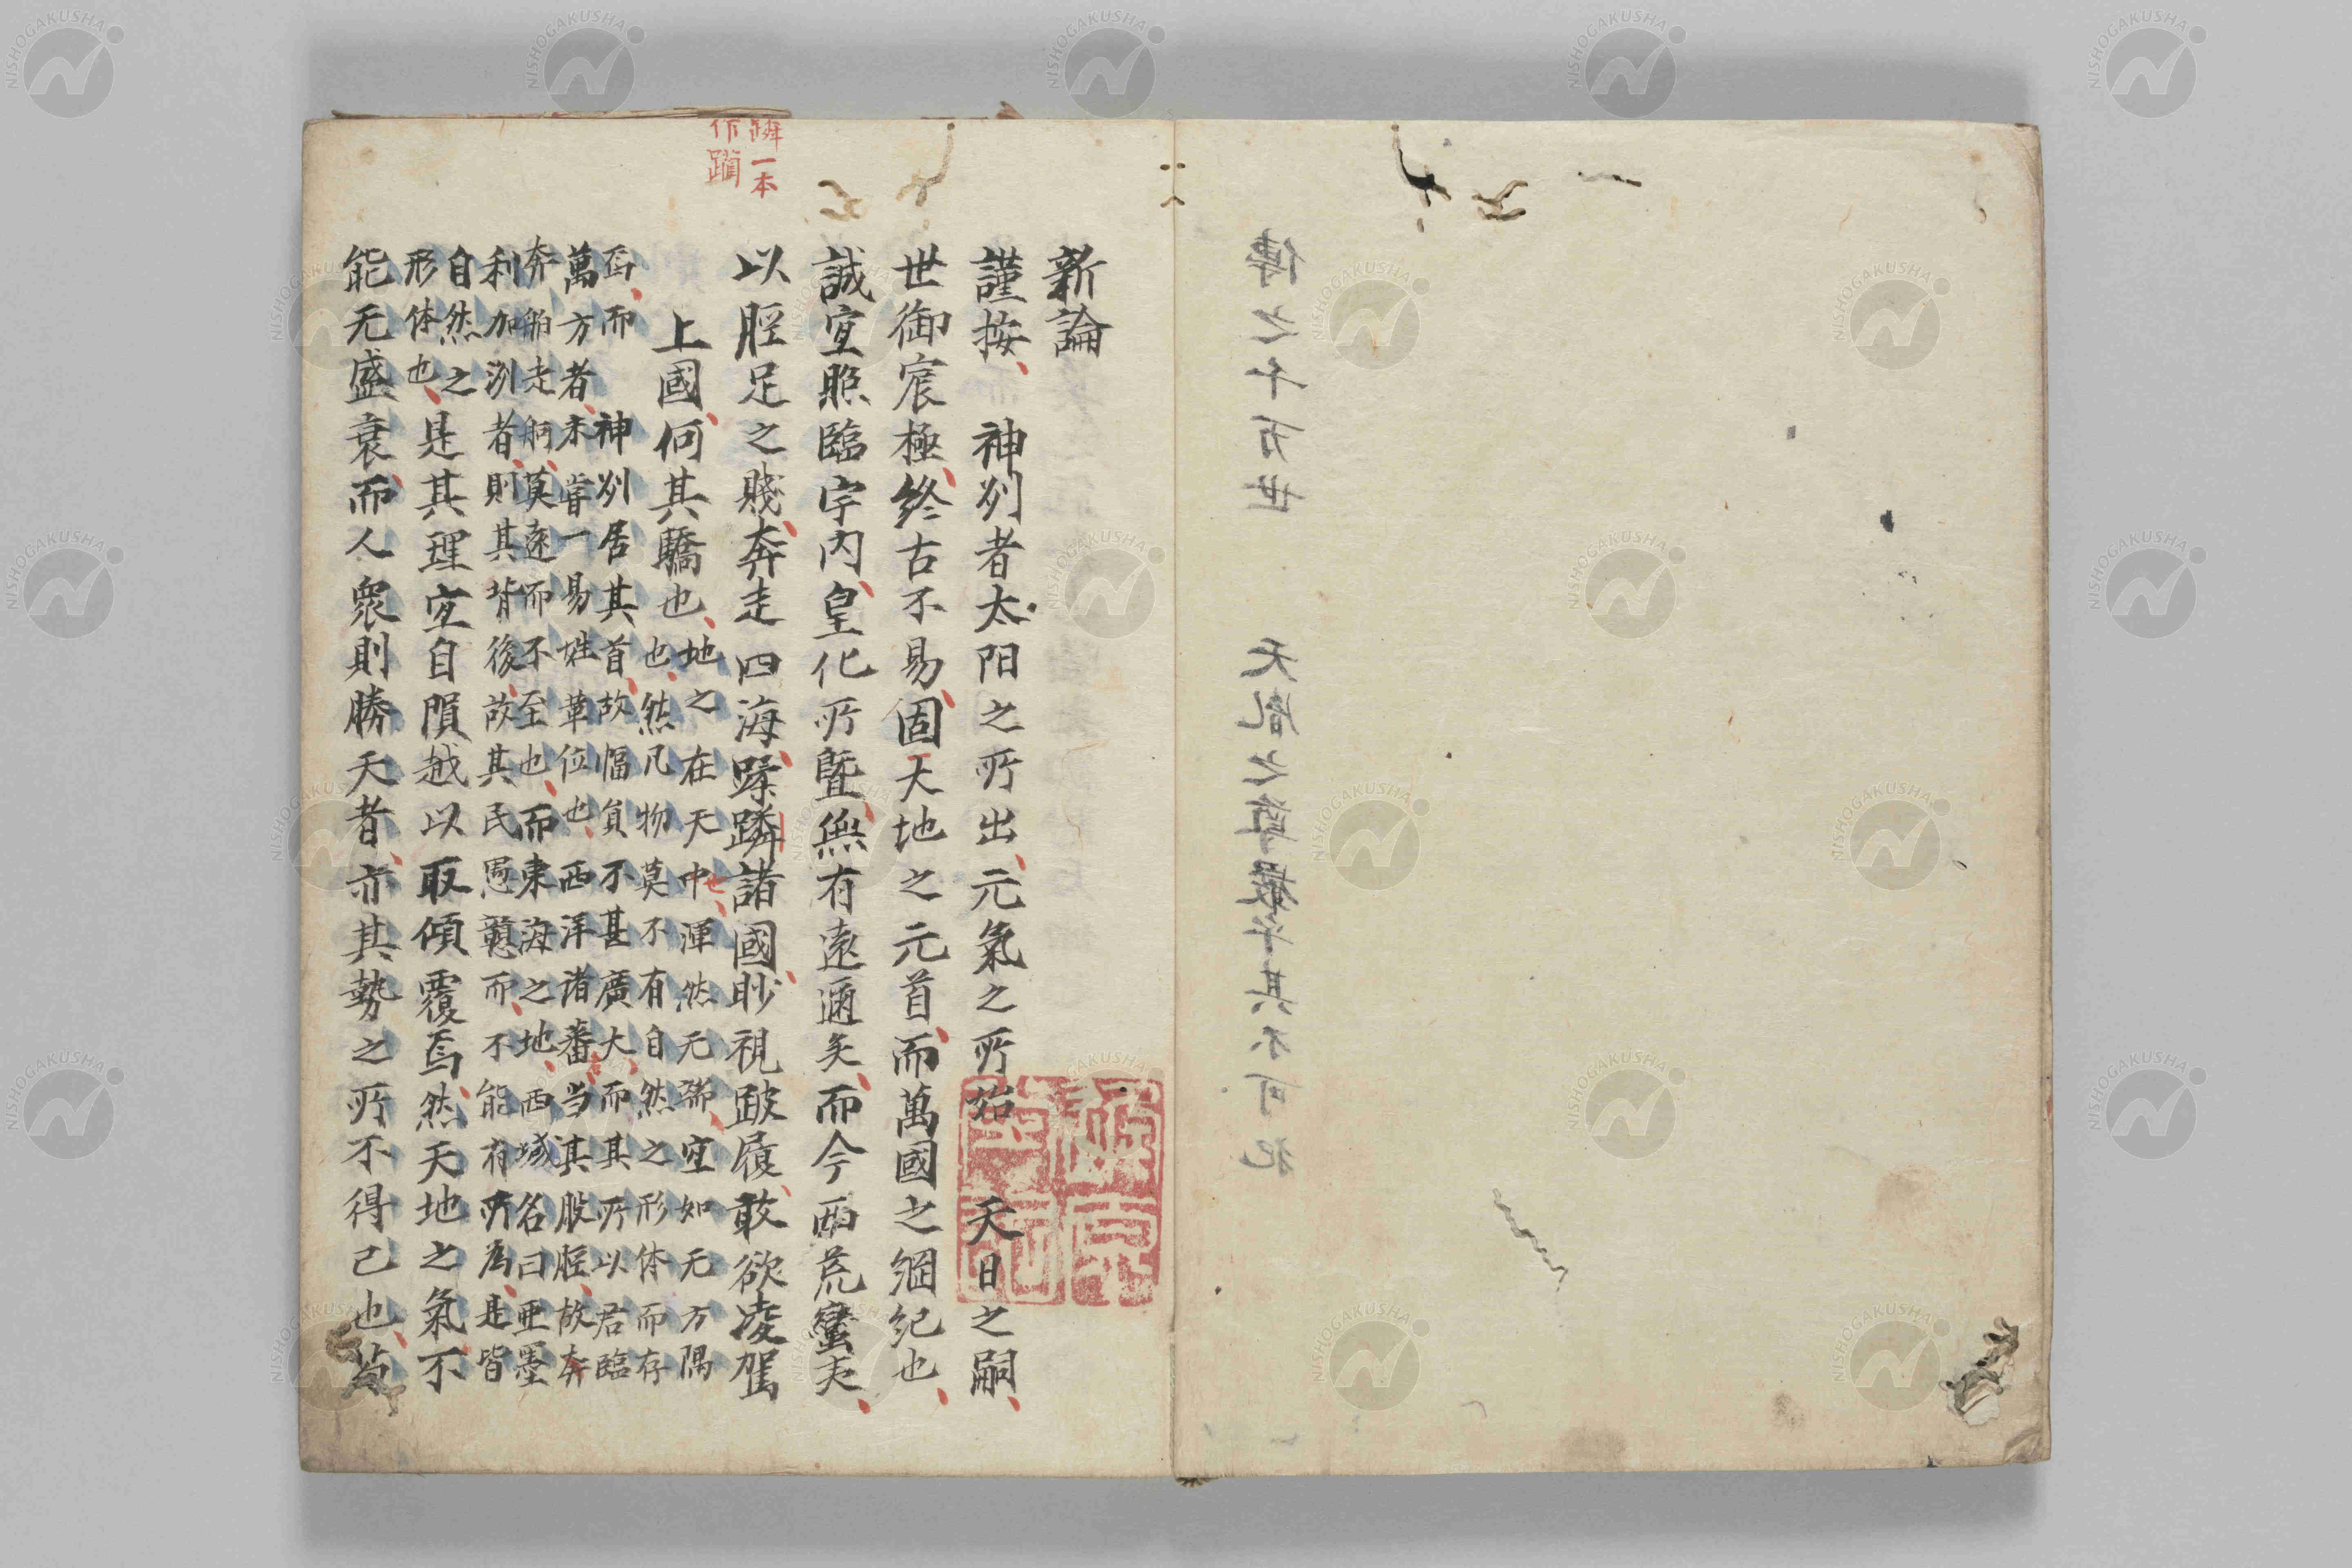 傳之千万世　天胤之尊嚴乎其不可犯
新論
謹按、　神州者太阳之所出、元氣之所始　天日之嗣、
世御宸極、終古不易、固大地之元首、而萬國之綱紀也、
誠宜照臨宇内、皇化所曁、無有遠邇矣、而今西荒蠻夷、
蹸一本
作躓
以脛足之賤、奔走四海、蹂蹸諸國、眇視跛履、敢欲凌駕
上國、何其驕也、
地之在天中、渾然无端、宜如无方隅
也、然凡物莫不有自然之形体而存
焉、而　神州居其首、故幅員不甚廣大、而其所以君臨
萬方者、未甞一易姓革位也、西洋诸番、当其股脛、故奔
奔舶走舸、莫遠而不至也、而東海之地、西域名曰亜墨
利加洲者、則其背後、故其民愚戇而、不能有所為、是皆
自然之
形体也、
是其理宜自隕越以取傾覆焉、然天地之氣不
能无盛衰、而人衆則勝天者、亦其勢之所不得已也、苟
NISHOGAKUSHA